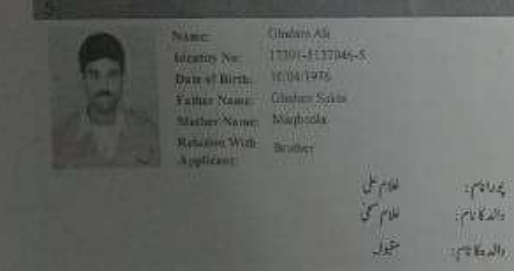 Name: Ghulam Ali
Identity No: 17301-5137046-5
Date of Birth: 10/04/1976
Father Name: Ghulam Sakhi
Mother Name: Maqboola
Relation With Applicant: Brother
پورا نام: غلام علی
والد کا نام: غلام سخی
والدہ کا نام: مقبولہ